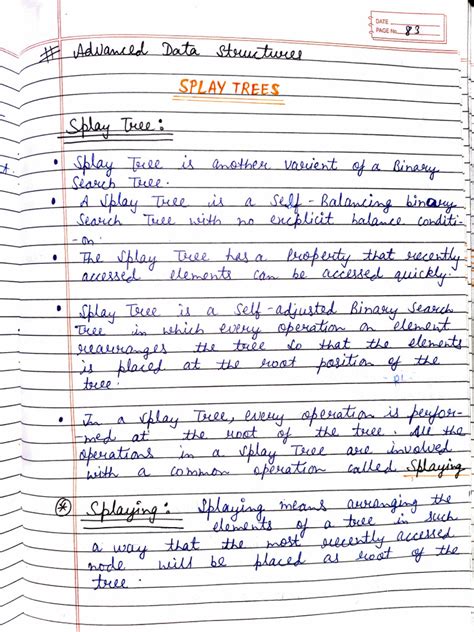 DATE
PAGE No. 83
# Advanced Data Structures
SPLAY TREES
Splay Tree :
• Splay Tree is another varient of a Binary
Search Tree.
• A Splay Tree is a Self-Balancing binary
Search Tree with no explicit balance conditi-
-on.
• The Splay Tree has a Property that recently
accessed elements can be accessed quickly.
• Splay Tree is a Self-adjusted Binary Search
Tree in which every operation on element
rearranges the tree so that the elements
is placed at the root position of the
tree.
• In a Splay Tree, every operation is perfor-
-med at the root of the tree. All the
operations in a Splay Tree are involved
with a common operation called Splaying
* Splaying : Splaying means arranging the
elements of a tree in such
a way that the most recently accessed
node will be placed as root of the
tree.